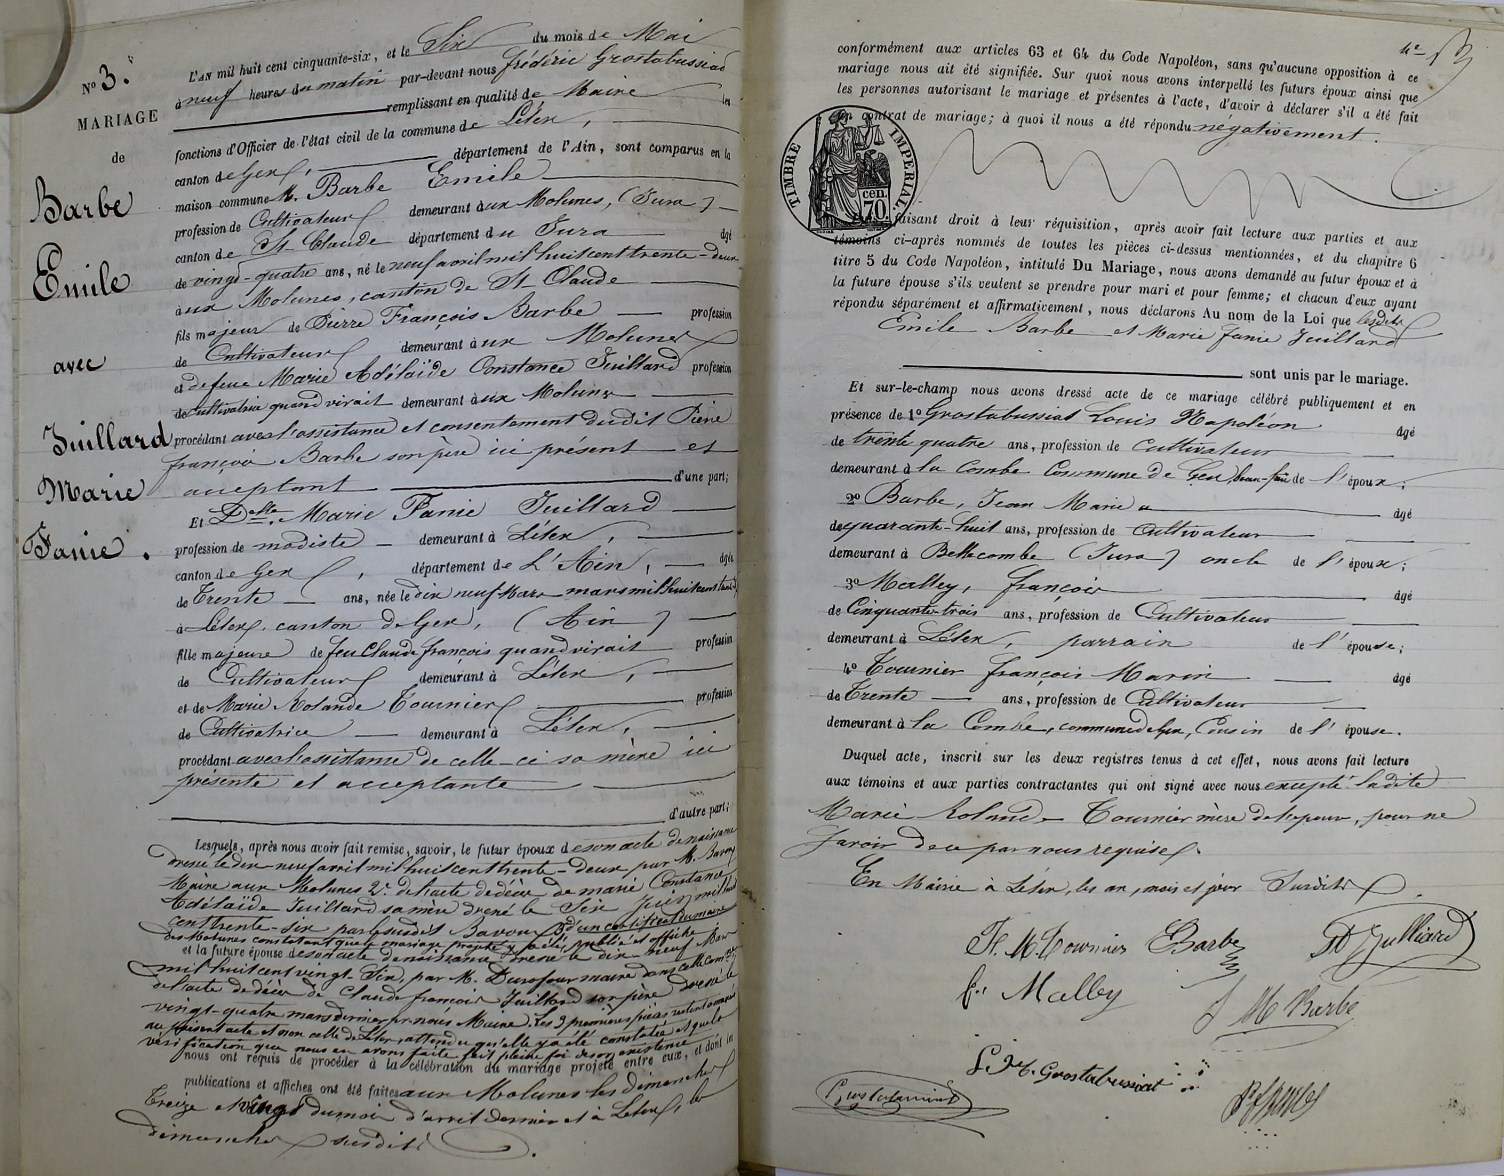 N° 3.
MARIAGE
de
Barbe
Emile
avec
Juillard
Marie
Fanie.
L'AN mil huit cent cinquante-six, et le Six du mois de Mai
à neuf heures du matin par-devant nous frédéric Grostabussiat
remplissant en qualité de Maire les
fonctions d'Officier de l'état civil de la commune de Lélex,
canton de Gex, département de l'Ain, sont comparus en la
maison commune M. Barbe Emile
profession de Cultivateur demeurant à ux Molunes, (Jura)
canton de St Claude département du Jura âgé
de vingt-quatre ans, né le neuf avril mil huit cent trente-deux
à ux Molunes, canton de St Claude
fils majeur de Pierre François Barbe profession
de Cultivateur demeurant à ux Molunes
et de feue Marie Adélaïde Constance Juillard profession
de cultivatrice quand vivait demeurant à ux Molunes
procédant avec l'assistance et consentement dudit Pierre
françois Barbe son père ici présent et
acceptant d'une part;
Et Delle Marie Fanie Juillard
profession de modiste demeurant à Lélex,
canton de Gex, département de L'Ain, âgée
de Trente ans, née le dix neuf Mars mars mil huit cent
à Lélex, canton de Gex, (Ain)
fille majeure de feu Claude françois quand vivait profession
de Cultivateur demeurant à Lélex,
et de Marie Rolande Tournier profession
de Cultivatrice demeurant à Lélex,
procédant avec l'assistance de celle-ci sa mère ici
présente et acceptante
d'autre part;
Lesquels, après nous avoir fait remise, savoir, le futur époux de son acte de naissance
dressé le dix-neuf avril mil huit cent trente-deux, par M. Bavoux
Maire aux Molunes 2° de l'acte de décès de marie Constance
Adélaïde Juillard sa mère dressé le Six juin mil huit
cent trente-six par le susdit Bavoux 3° d'un certificat du maire
des Molunes constatant que le mariage projeté y a été publié et affiché
et la future épouse de son acte de naissance dressé le dix-neuf Mars
mil huit cent vingt-Six, par M. Durafour maire dans cette Comne
de l'acte de décès de Claude francois Juillard son père dressé le
vingt-quatre mars dernier par nous Maire. Les 3 premières pièces restent annexées
au présent acte et non celle de Lélex, attendu qu'elle y a été constatée et que la
vérification que nous en avons faite fait pleine foi de son existence
nous ont requis de procéder à la célébration du mariage projeté entre eux, et dont les
publications et affiches ont été faites aux Molunes les dimanches
Treize et vingt du mois d'avril dernier et à Lélex, les
dimanches susdits.
4e
conformément aux articles 63 et 64 du Code Napoléon, sans qu'aucune opposition à ce
mariage nous ait été signifiée. Sur quoi nous avons interpellé les futurs époux ainsi que
les personnes autorisant le mariage et présentes à l'acte, d'avoir à déclarer s'il a été fait
un contrat de mariage; à quoi il nous a été répondu négativement.
TIMBRE IMPERIAL
cen.
70.
faisant droit à leur réquisition, après avoir fait lecture aux parties et aux
témoins ci-après nommés de toutes les pièces ci-dessus mentionnées, et du chapitre 6
titre 5 du Code Napoléon, intitulé Du Mariage, nous avons demandé au futur époux et à
la future épouse s'ils veulent se prendre pour mari et pour femme; et chacun d'eux ayant
répondu séparément et affirmativement, nous déclarons Au nom de la Loi que lesdits
Emile Barbe et Marie Fanie Juillard
sont unis par le mariage.
Et sur-le-champ nous avons dressé acte de ce mariage célébré publiquement et en
présence de 1° Grostabussiat Louis Napoléon âgé
de trente quatre ans, profession de Cultivateur
demeurant à la Combe Commune de Gex, beau-frère de l'époux;
2° Barbe, Jean Marie âgé
de quarante-huit ans, profession de Cultivateur
demeurant à Bellecombe (Jura) oncle de l'époux;
3° Malley, françois âgé
de Cinquante-trois ans, profession de Cultivateur
demeurant à Lélex, parrain de l'épouse;
4° Tournier françois Marin âgé
de Trente ans, profession de Cultivateur
demeurant à la Combe, commune de Gex, Cousin de l'épouse.
Duquel acte, inscrit sur les deux registres tenus à cet effet, nous avons fait lecture
aux témoins et aux parties contractantes qui ont signé avec nous excepté ladite
Marie Rolande Tournier mère de l'épouse, pour ne
savoir de ce par nous requise.
En Mairie à Lélex, les an, mois et jour Susdits.
F. M. Tournier Barbe Juilliard
f. Malley
J M Barbe
L. N. Grostabussiat